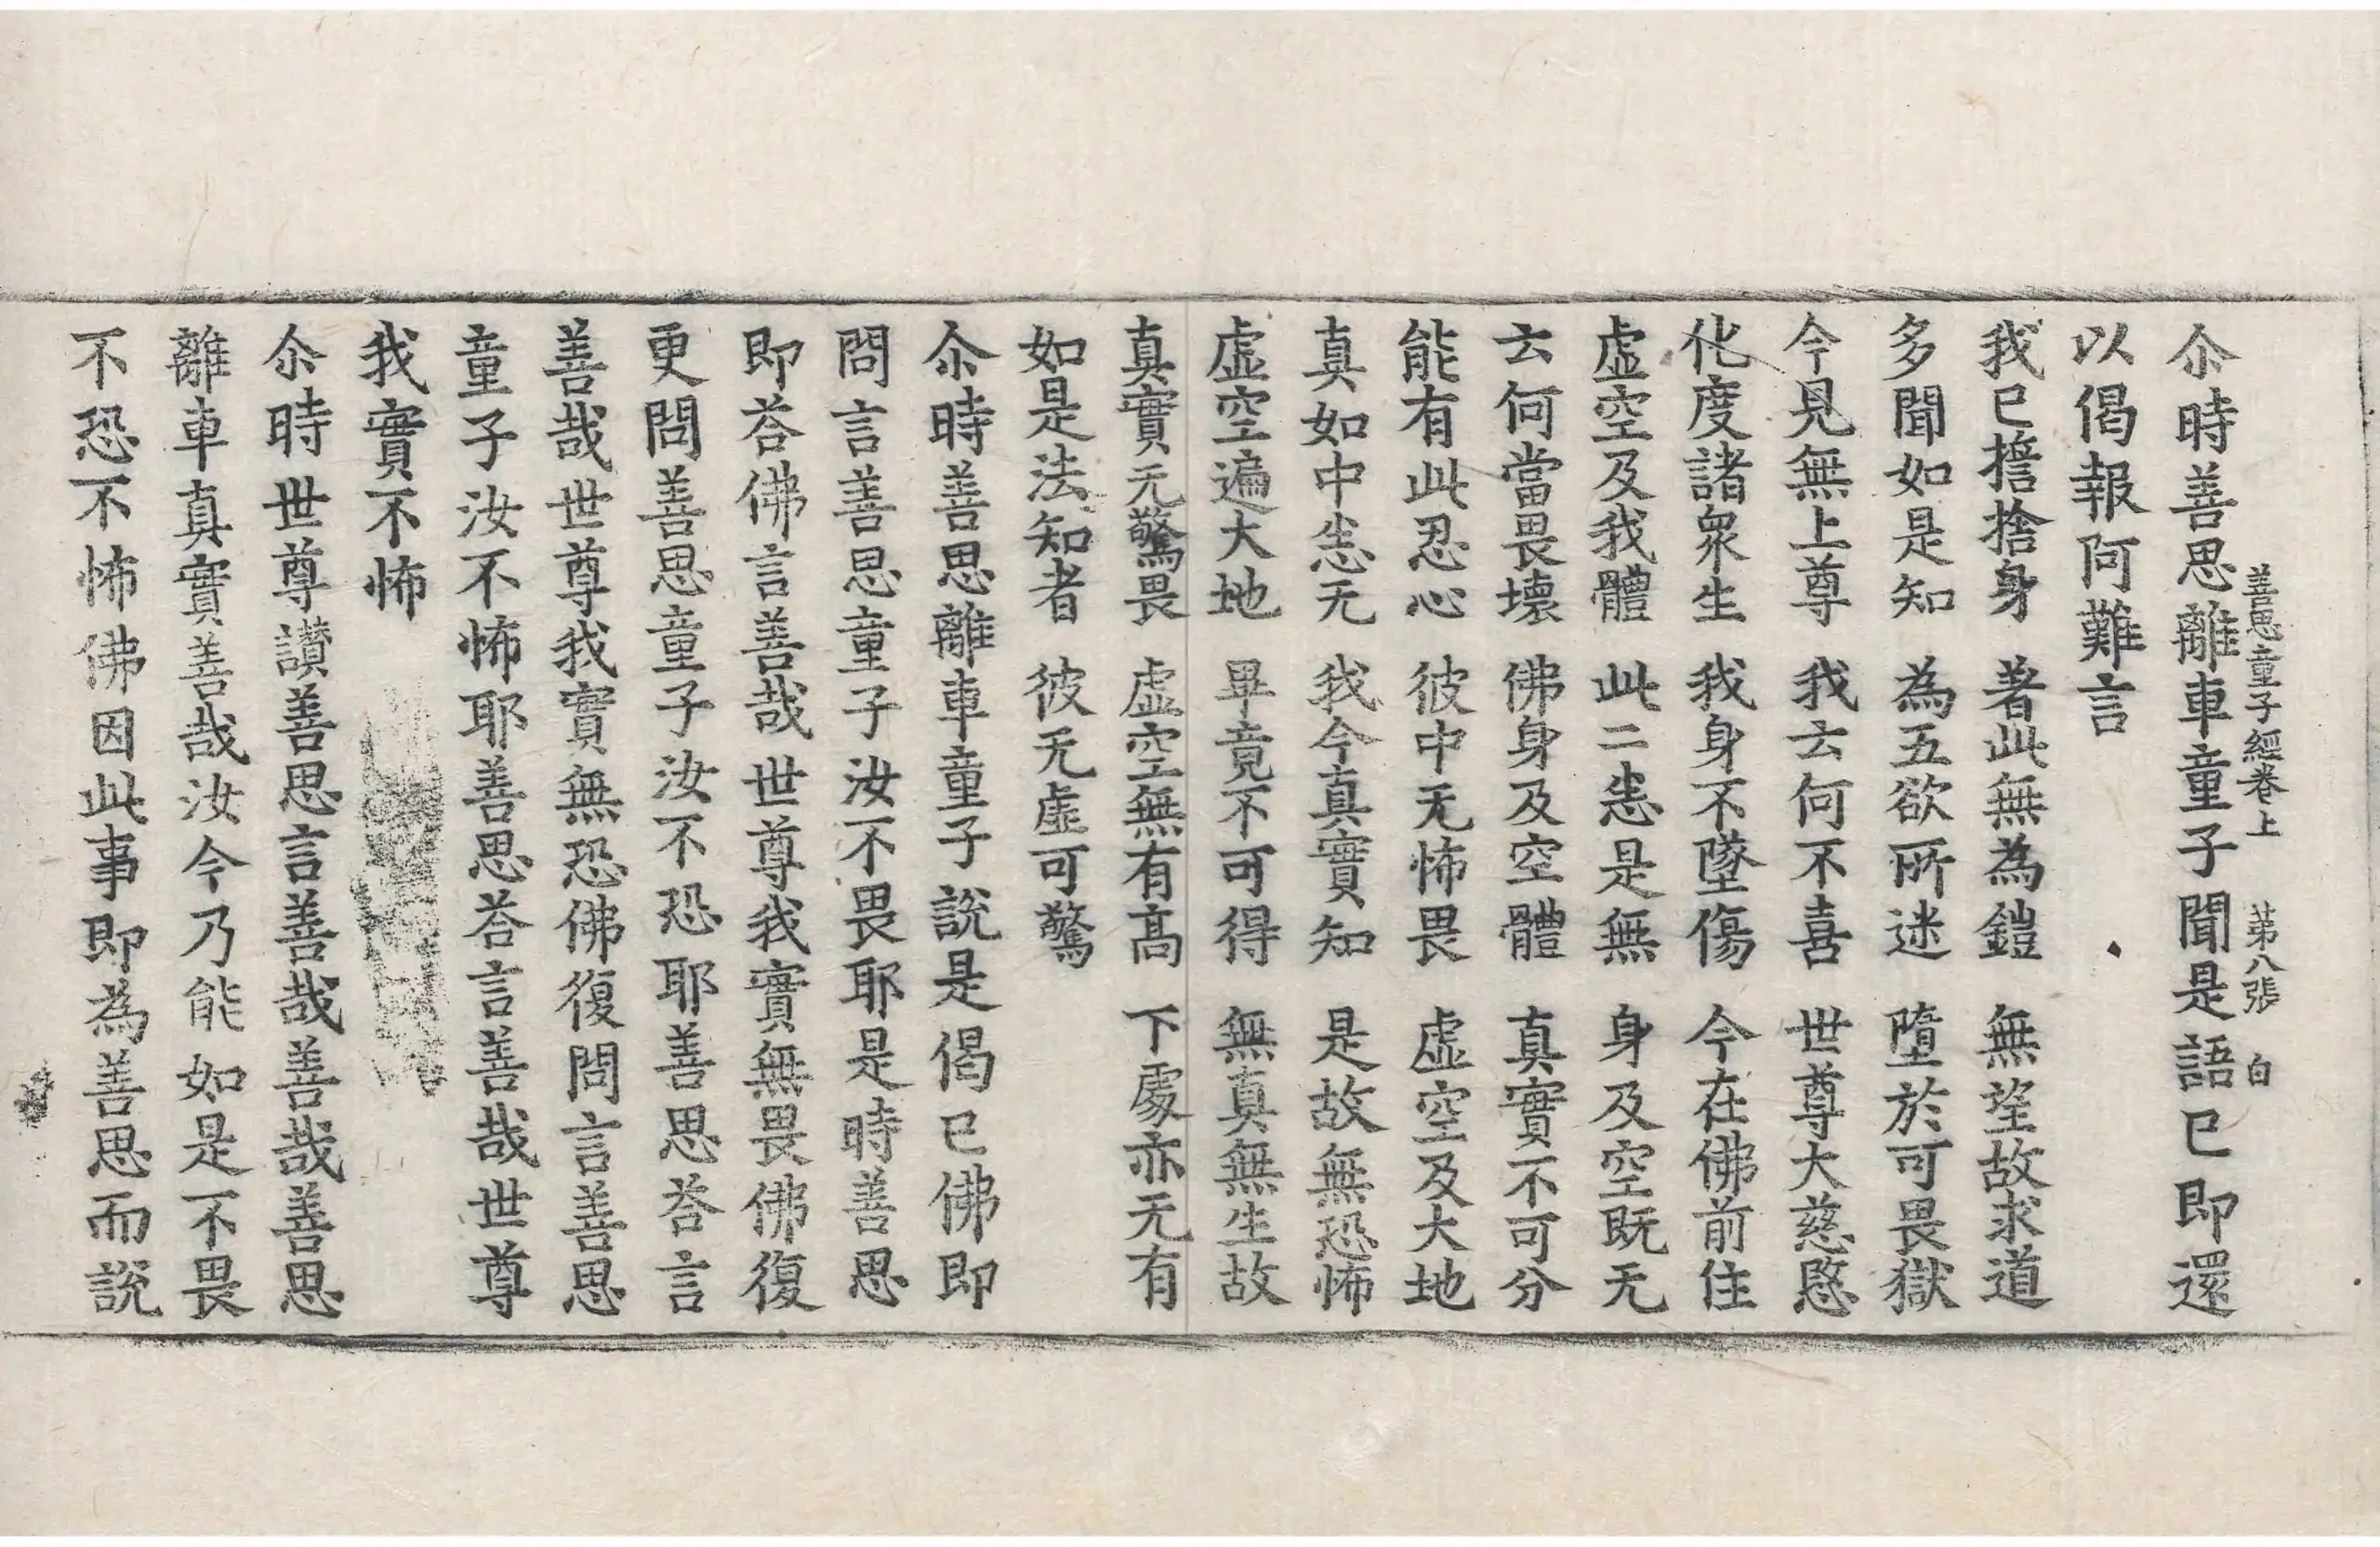 善思童子經卷上　苐八張　白
尒時善思離車童子聞是語已即還
以偈報阿難言
我已擔捨身　著此無為鎧　無望故求道
多聞如是知　為五欲所迷　墮於可畏獄
今見無上尊　我云何不喜　世尊大慈愍
化度諸衆生　我身不墜傷　今在佛前住
虛空及我體　此二悉是無　身及空既无
云何當畏壞　佛身及空體　真實不可分
能有此忍心　彼中无怖畏　虛空及大地
真如中悉无　我今真實知　是故無恐怖
虛空遍大地　畢竟不可得　無真無生故
真實无驚畏　虛空無有高　下處亦无有
如是法知者　彼无虛可驚
尒時善思離車童子說是偈已佛即
問言善思童子汝不畏耶是時善思
即荅佛言善哉世尊我實無畏佛復
更問善思童子汝不恐耶善思荅言
善哉世尊我實無恐佛復問言善思
童子汝不怖耶善思荅言善哉世尊
我實不怖
尒時世尊讃善思言善哉善哉善思
離車真實善哉汝今乃能如是不畏
不恐不怖佛因此事即為善思而說